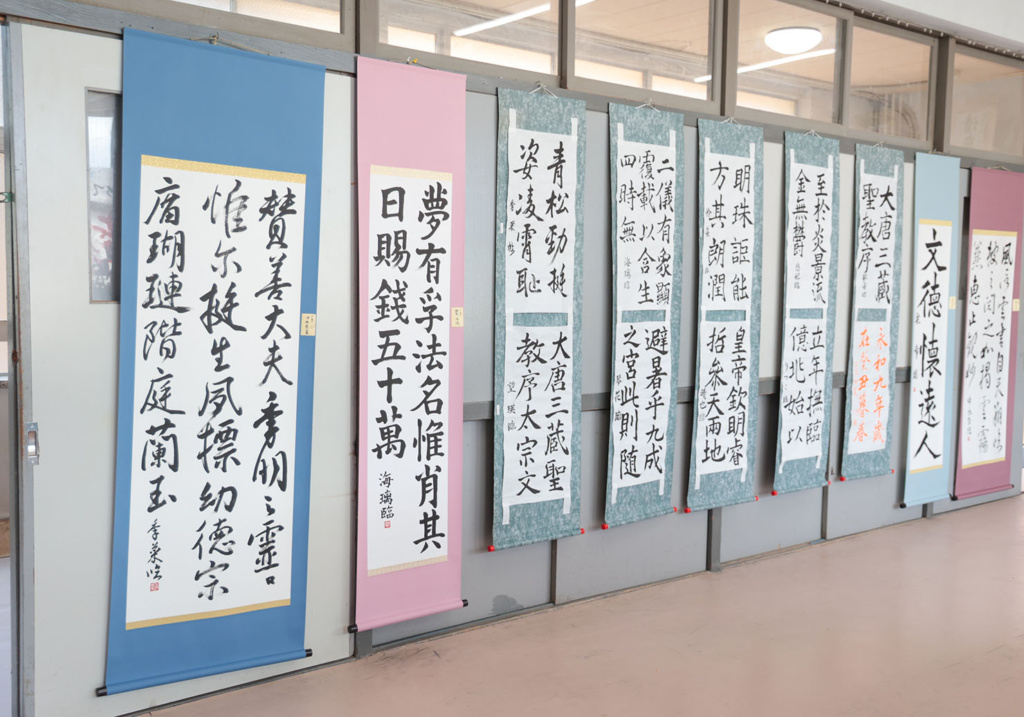 賛善大夫季明之靈曰
惟尓挺生夙標幼德宗
庿瑚璉階庭蘭玉
季榮臨
夢有孚法名惟肖其
日賜錢五十萬
海璃臨
青松勁挺
姿凌霄恥
大唐三蔵聖
教序太宗文
望瑛臨
二儀有象顯
覆載以含生
四時無
海璃臨
避暑乎九成
之宮此則隨
明珠詎能
方其朗潤
皇帝欽明睿
哲参天兩地
至於炎景流
金無鬱
立年撫臨
億兆始以
大唐三蔵
聖教序
永和九年歳
在癸丑暮春
文徳懐遠人